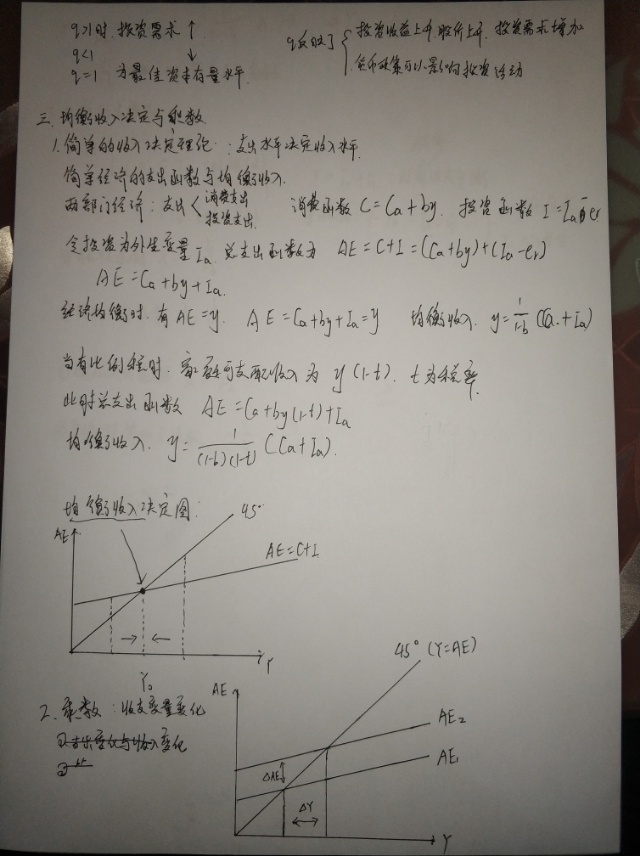 q>1时，投资需求↑
q<1 ↓
q=1 为最佳资本存量水平.
q反映了 { 投资收益上升 股价上升，投资需求增加
货币政策可以影响投资活动
三. 均衡收入决定与乘数
1. 简单的收入决定理论：支出水平决定收入水平.
简单经济的支出函数与均衡收入.
两部门经济：支出 < 消费支出 投资支出. 消费函数 C=Ca+by. 投资函数 I=Ia er
令投资为外生变量 Ia 总支出函数为 AE=C+I=(Ca+by)+(Ia-er)
AE=Ca+by+Ia.
经济均衡时，有AE=y. AE=Ca+by+Ia=y 均衡收入. y=1/(1-b) (Ca+Ia)
当有比例税时，家庭可支配收入为 y(1-t). t为税率.
此时总支出函数 AE=Ca+by(1-t)+Ia
均衡收入. y=1/((1-b)(1-t)) (Ca+Ia).
均衡收入决定图：
45°
AE
AE=C+I
→ ←
Y
Y₀
45° (Y=AE)
AE
2. 乘数：收支变量变化
AE₂
AE₁
ΔAE
ΔY
Y